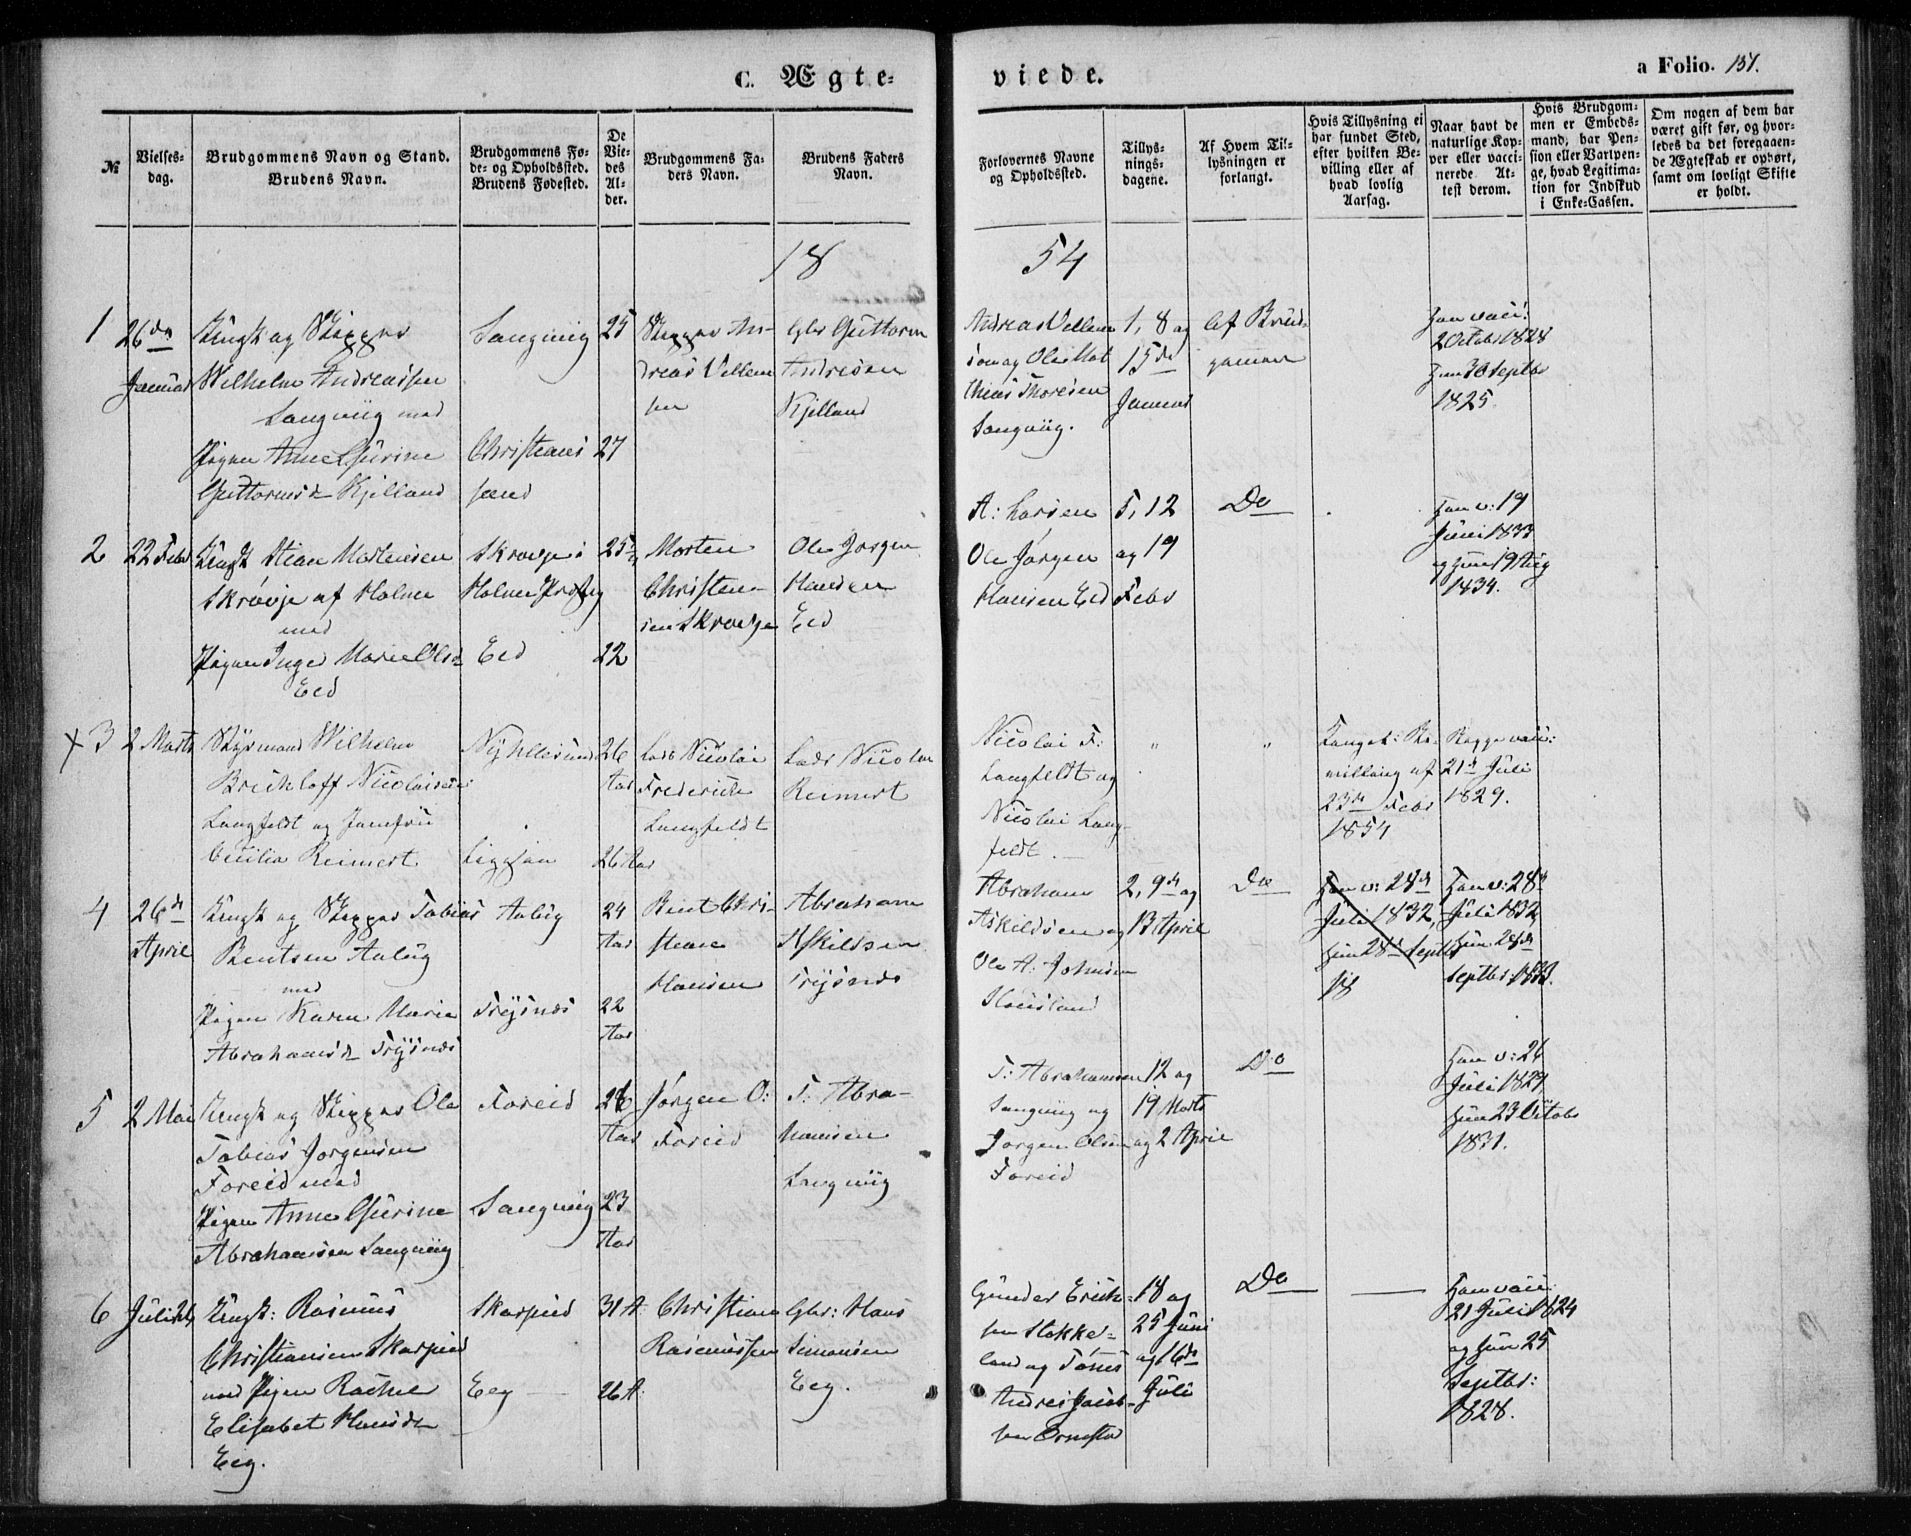 C. Ægte-
viede.
a Folio. 151.
№
Vielses-
dag.
Brudgommens Navn og Stand.
Brudens Navn.
Brudgommens Fø-
de- og Opholdssted.
Brudens Fødested.
De
Vie-
des
Al-
der.
Brudgommens Fa-
ders Navn.
Brudens Faders
Navn.
Forlovernes Navne
og Opholdssted.
Tillys-
nings-
dagene.
Af Hvem Til-
lysningen er
forlangt.
Hvis Tillysning ei
har fundet Sted,
efter hvilken Be-
villing eller af
hvad lovlig
Aarsag.
Naar havt de
naturlige Kop-
per eller vacci-
nerede At-
test derom.
Hvis Brudgom-
men er Embeds-
mand, har Pen-
sion eller Vartpen-
ge, hvad Legitima-
tion for Indskud
i Enke-Cassen.
Om nogen af dem har
været gift før, og hvor-
ledes da det foregaaen-
de Ægteskab er ophørt,
samt om lovligt Skifte
er holdt.
18
54
1
26de
Januar
Ungk og Skipper
Wilhelm Andreassen
Langviig med
Pigen Anne Gurine
Guttormsd Kjelland
Langviig
Christians
sand
25
27
Skipper An-
dreas Vellem
sen
Gbr Guttorm
Andresen
Kjelland
Andreas Vellem
sen og Ole Mat
thias Thoresen
Langviig.
1, 8 og
15de
Januar
Af Brud-
gommen
Han vacc:
2 Octobr 1828
Hun 30 Septbr
1825.
2
22 Febr
Ungk Stian Mortensen
Skrøvje af Holme
med
Pigen Inger Marie Olsd
Eed
Skrøvje i
Holme Prstg
Eed
25
22
Morten
Christen-
sen Skrøvje
Ole Jørgen
Hansen
Eed
A: Larsen
Ole Jørgen
Hansen Eed
5, 12
og 19
Febr
Do
Han v: 19
Juni 1833
og Hun 19 Aug
1834.
3
2 Marts
Styrmand Wilhelm
Nicolaisen
Langfeldt og Jomfru
Cecilia Reinert
Ny Hellesund
26
Aar
26 Aar
Lods Nicolai
Frederich
Langfeldt
Lods Nicolai
Reinert
Nicolai F:
Langfeldt og
Nicolai Lang-
feldt.
"
"
Konget: Be-
villing af
23de Febr
1854
Begge vacc:
21de Juli
1829.
4
26de
April
Ungk og Skipper Tobias
Bentsen Aabug
med
Pigen Karen Marie
Abrahamsd Trysnes
Aabug
Trysnes
24
Aar
22
Aar
Bent Chri-
stian
Hansen
Abraham
Askildsen
Trysnes
Abraham
Askildsen og
Ole A: Johnsen
Hausland
2, 9de og
13 April
Do
Han v: 28de
Juli 1832,
Hun 28de Septbr
18
Han v: 28de
Juli 1832,
Hun 28de
Septbr: 1833.
5
2 Mai
Ungk og Skipper Ole
Tobias Jorgensen
Foreid med
Pigen Anne Gurine
Abrahamsen Langviig
Foreid
Langviig
26
Aar
23
Aar
Jørgen O:
Foreid
T: Abra-
hamsen
Langviig
T: Abrahamsen
Langviig og
Jorgen Olsen
Foreid
12 og
19 Marts
og 2 April
Do
Han v: 26
Juli 1829
Hun 23 Octobr
1831.
6
Ungk: Rasmus
Christiansen Skarpeid
med Pigen Rachel
Elisabet Hansdr
Eeg.
Skarpeid
Eeg
31 A
26 A.
Christian
Rasmussen
Gbr: Hans
Simonsen
Eeg.
Gunder Erich-
sen Stokke-
land og Tønnes
Andreas Jacob-
sen Ornefto
18 og
25 Juni
og 16de
Juli
Do
Han vacc:
21 Juli 1824
og Hun 25
Septbr:
1828.